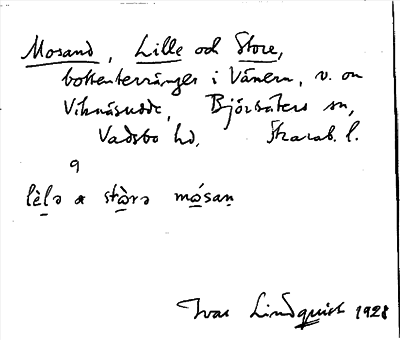 Mosand, Lille och Store,
bottenterränger i Vänern, v. om
Viknäsudde, Björsäters sn,
Vadsbo hd, Skarab. l.
9
lèlə a stòrə mósaṇ
Ivar Lindquist 1928